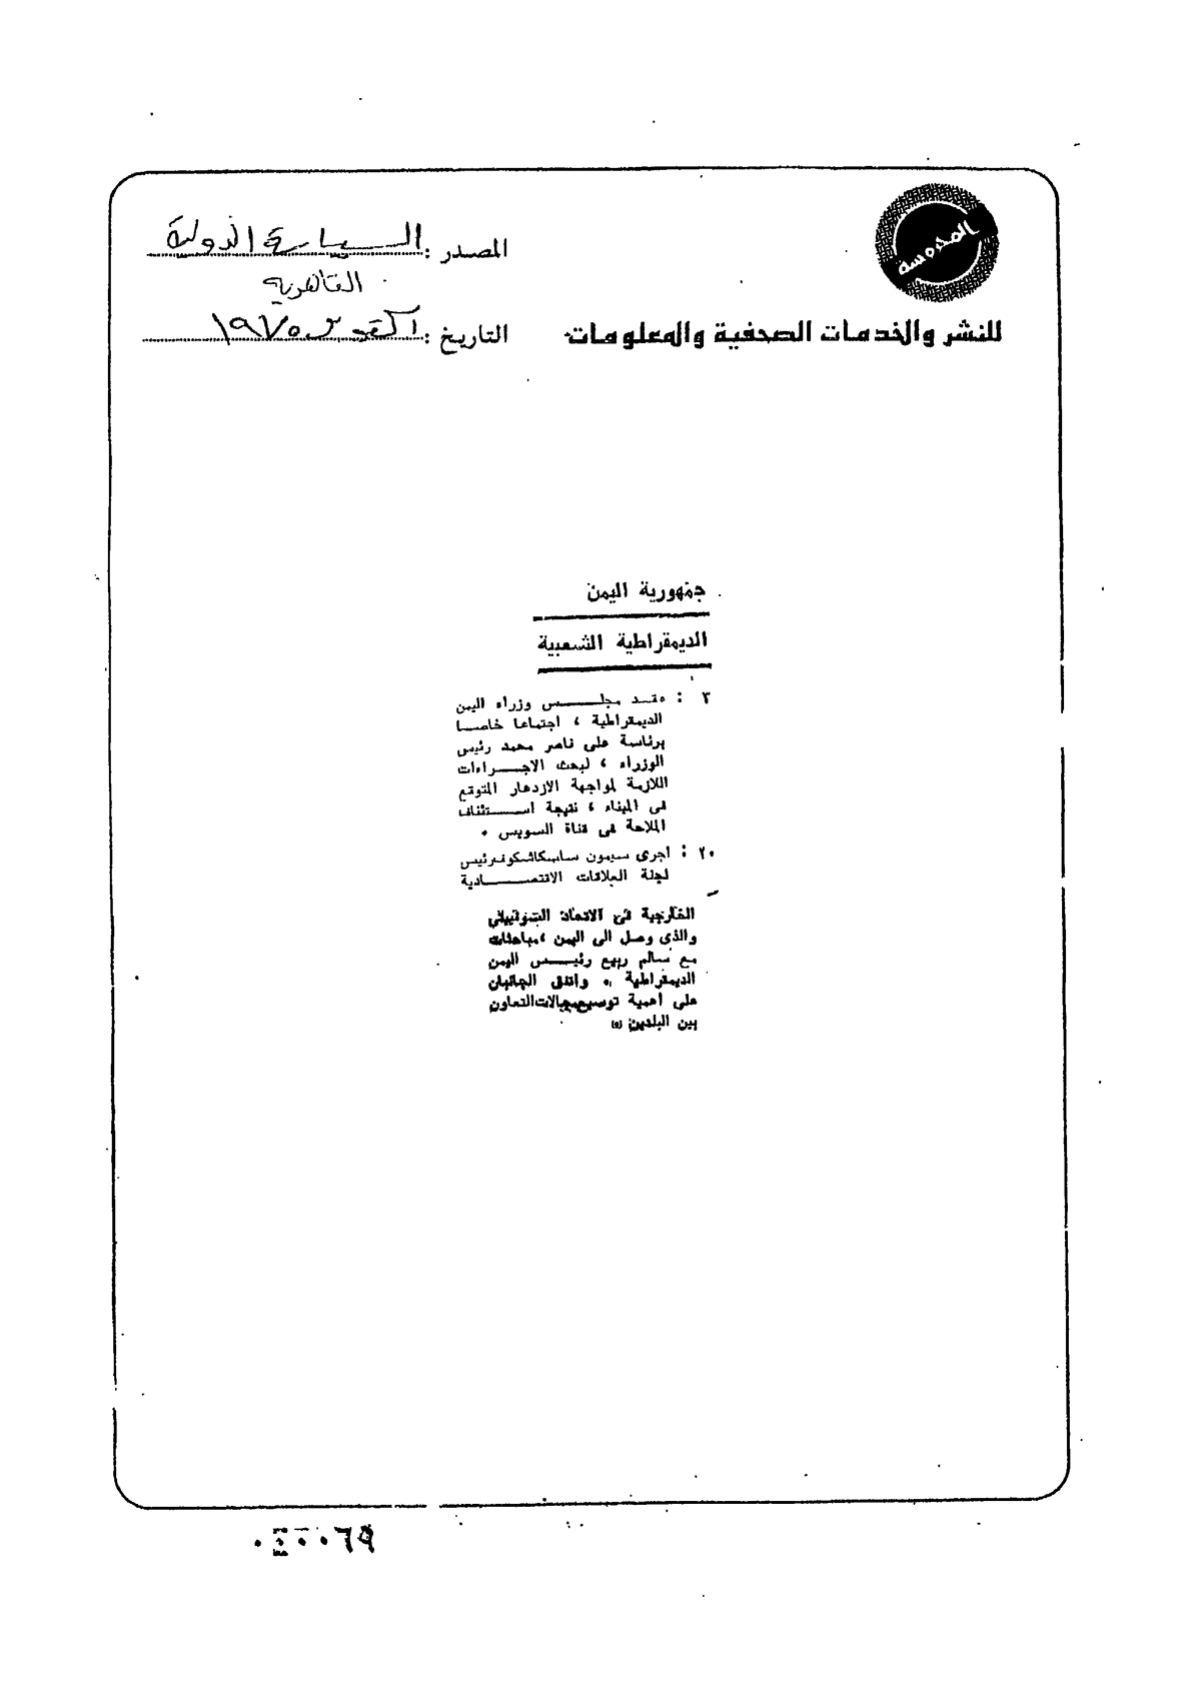 المحروسة
للنشر والخدمات الصحفية والمعلومات
المصدر : السياسة الدولية
القاهرية
التاريخ : اكتوبر ١٩٧٥
جمهورية اليمن
الديمقراطية الشعبية
٣ : عقد مجلس وزراء اليمن
الديمقراطية ، اجتماعا خاصا
برئاسة على ناصر محمد رئيس
الوزراء ، لبحث الاجراءات
اللازمة لمواجهة الازدهار المتوقع
فى الميناء ، نتيجة استئناف
الملاحة فى قناة السويس .
٢٠ : اجرى سيمون ساسكاشكوف رئيس
لجنة العلاقات الاقتصادية
الخارجية فى الاتحاد السوفييتى
والذى وصل الى اليمن ، مباحثات
مع سالم ربيع رئيس اليمن
الديمقراطية . واتفق الجانبان
على اهمية توسيع مجالات التعاون
بين البلدين .